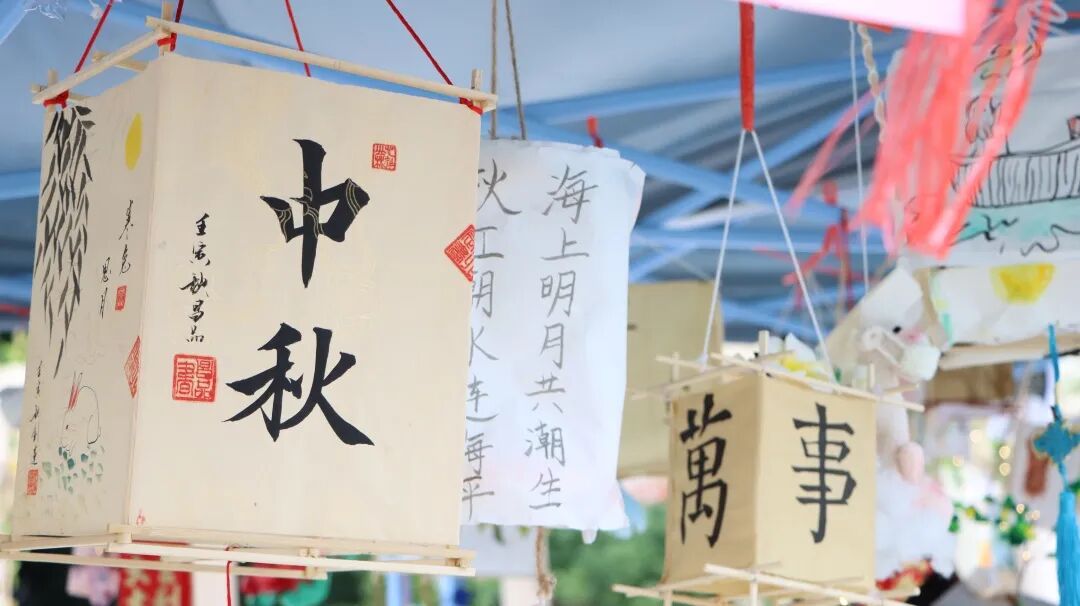 中秋
壬寅秋
海上明月共潮生
秋江潮水连海平
萬
事